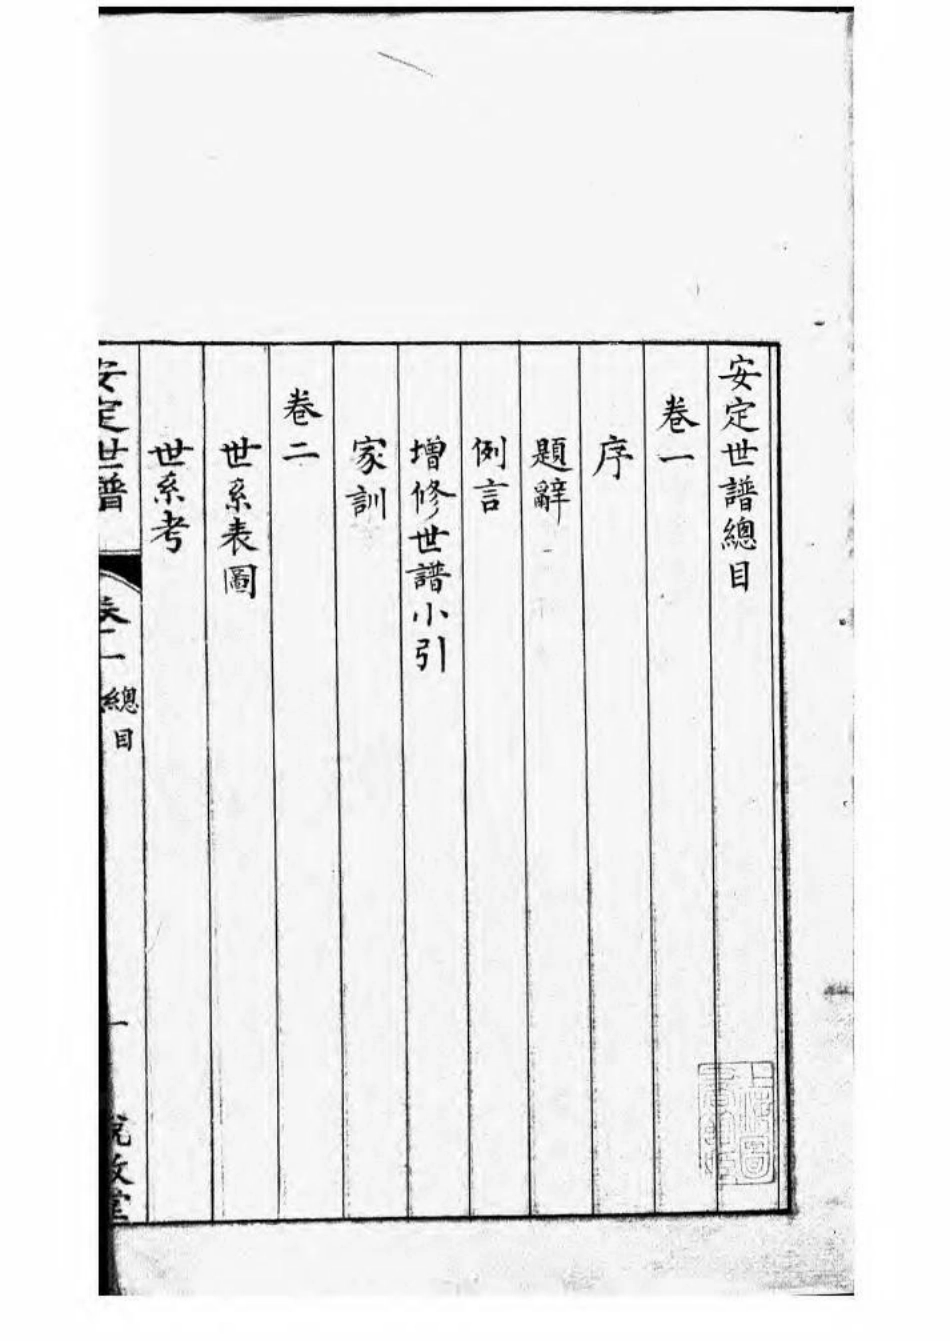 安定世譜總目
卷一
序
題辭
例言
增修世譜小引
家訓
卷二
世系表圖
世系考
安定世譜
總目
一
上海圖
書館藏